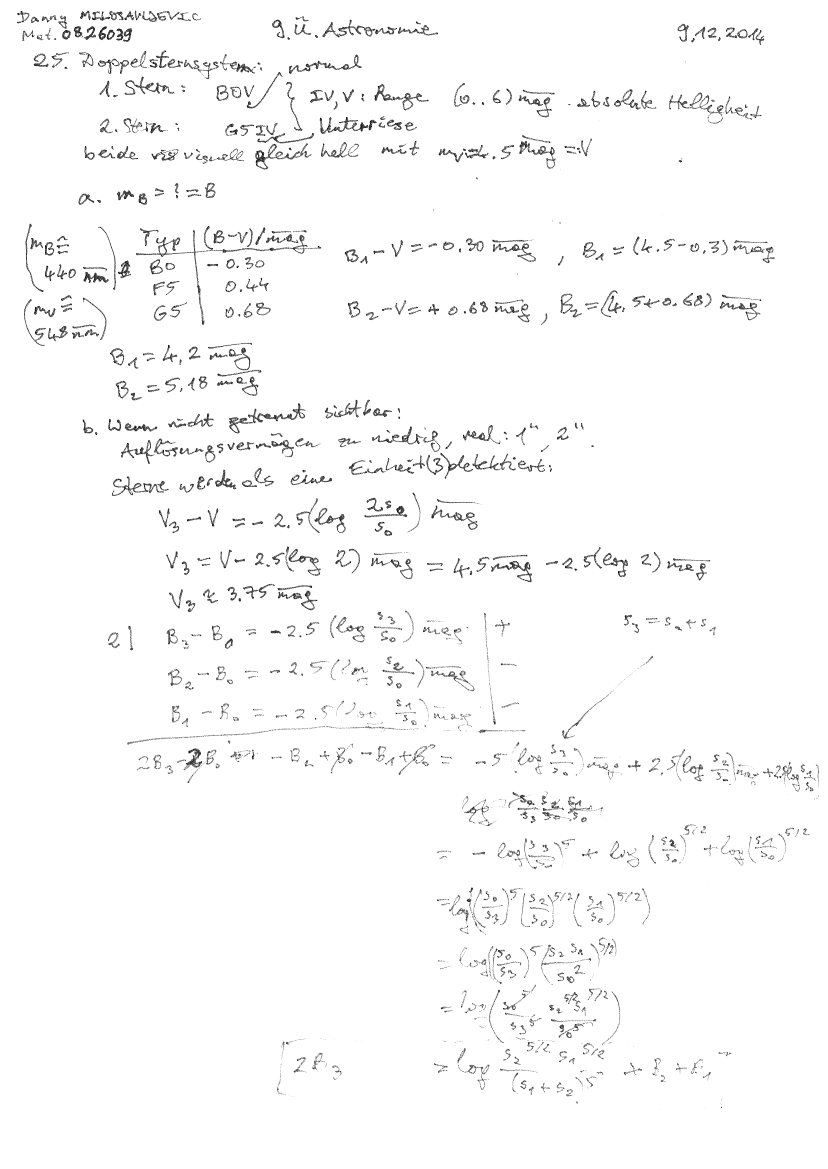 Danny MILOSAVLJEVIC
Mat. 0826039
9. Ü. Astronomie
9,12,2014
25. Doppelsternsystem: normal
1. Stern: B0V } IV, V: Range (0..6) mag absolute Helligkeit
2. Stern: G5IV Unterriese
beide visuell gleich hell mit 4.5 mag =: V
a. m_B = ! = B
(m_B ≙ 440 nm)
(m_V ≙ 548 nm)
Typ | (B-V)/mag
B0 | -0.30
F5 | 0.44
G5 | 0.68
B₁-V = -0.30 mag, B₁ = (4.5-0.3) mag
B₂-V = +0.68 mag, B₂ = (4,5+0.68) mag
B₁ = 4,2 mag
B₂ = 5,18 mag
b. Wenn nicht getrennt sichtbar:
Auflösungsvermögen zu niedrig, real: 1", 2".
Sterne werden als eine Einheit (3) detektiert:
V₃ - V = -2.5 (log 2s₀/s₀) mag
V₃ = V - 2.5 (log 2) mag = 4,5 mag - 2.5 (log 2) mag
V₃ ≈ 3.75 mag
2| B₃ - B₀ = -2.5 (log s₃/s₀) mag | +
s₃ = s₂ + s₁
B₂ - B₀ = -2.5 (log s₂/s₀) mag | -
B₁ - B₀ = -2.5 (log s₁/s₀) mag | -
2B₃ - 2B₀ - B₂ + B₀ - B₁ + B₀ = -5 (log s₃/s₀) mag + 2.5 (log s₂/s₀) mag + 2.5 (log s₁/s₀)
= -log (s₃/s₀)⁵ + log (s₂/s₀)^5/2 + log (s₁/s₀)^5/2
= log ((s₀/s₃)⁵ (s₂/s₀)^5/2 (s₁/s₀)^5/2)
= log ((s₀/s₃)⁵ (s₂ s₁/s₀²)^5/2)
= log (s₀⁵/s₃⁵ s₂^5/2 s₁^5/2/s₀⁵)
[2B₃ = log s₂^5/2 s₁^5/2/(s₁+s₂)⁵ + B₂ + B₁